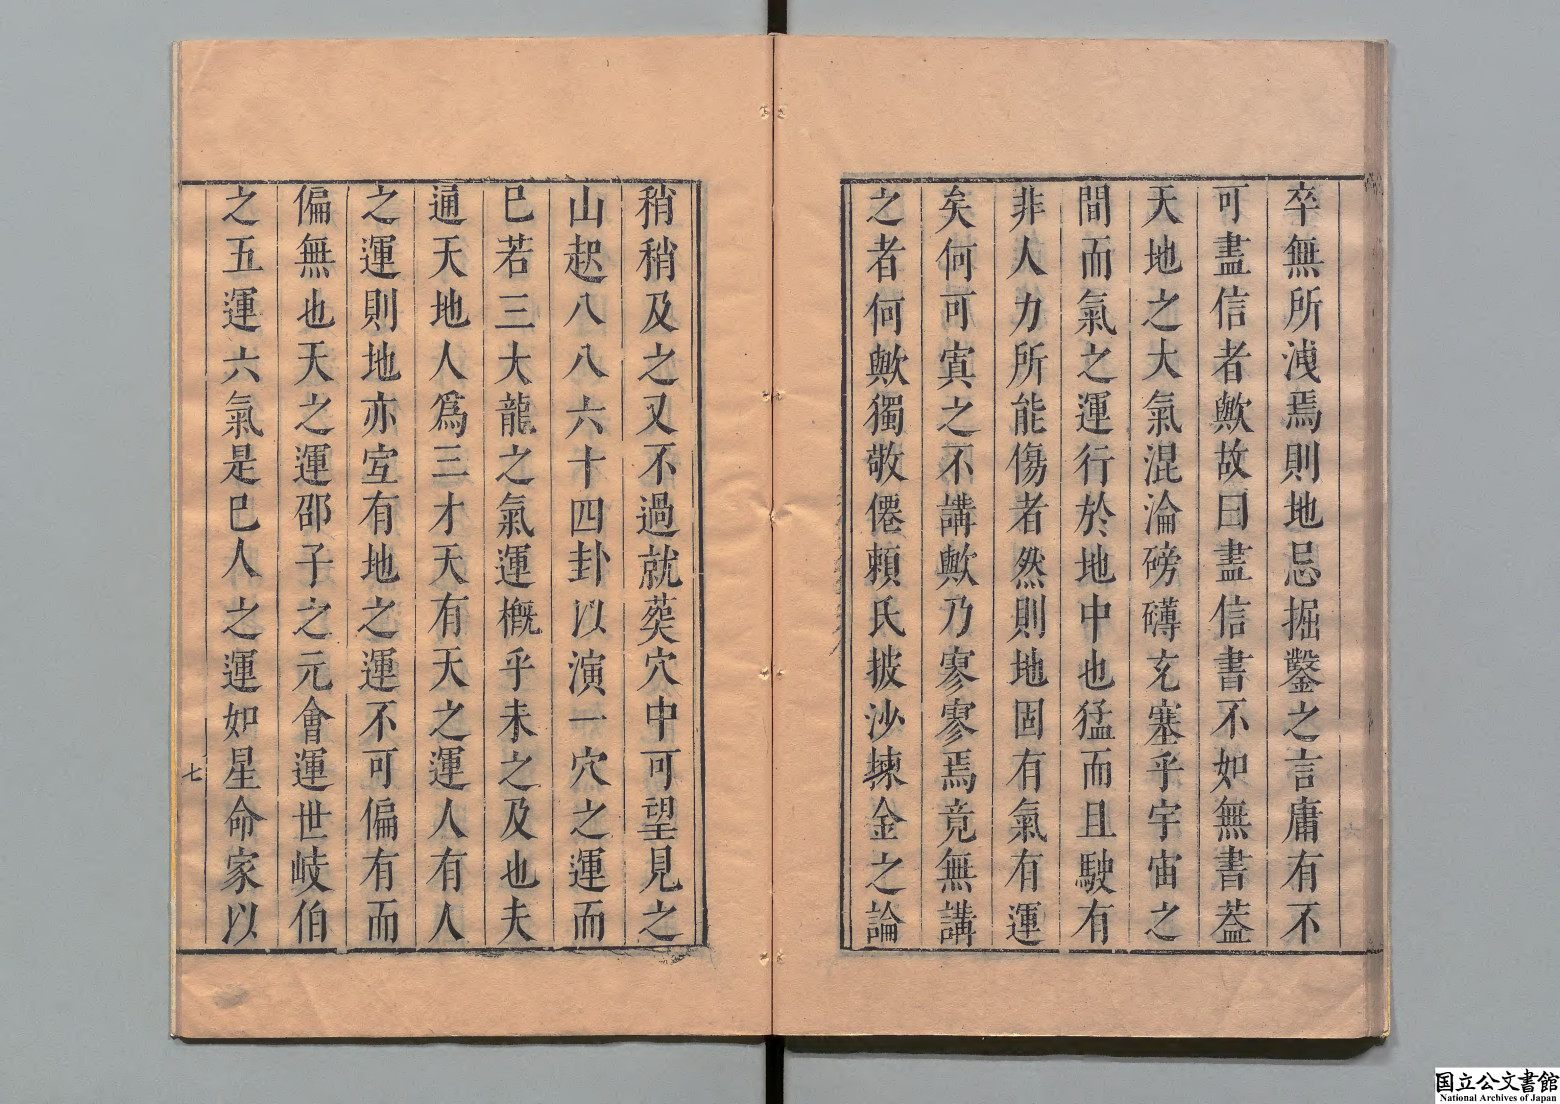 卒無所洩焉則地忌掘鑿之言庸有不
可盡信者歟故曰盡信書不如無書蓋
天地之大氣混淪磅礴充塞乎宇宙之
間而氣之運行於地中也猛而且駛有
非人力所能傷者然則地固有氣有運
矣何可寘之不講歟乃寥寥焉竟無講
之者何歟獨敬僊賴氏披沙揀金之論
稍稍及之又不過就葬穴中可望見之
山起八八六十四卦以演一穴之運而
已若三大龍之氣運槪乎未之及也夫
通天地人爲三才天有天之運人有人
之運則地亦宜有地之運不可偏有而
偏無也天之運邵子之元會運世岐伯
之五運六氣是已人之運如星命家以
七
六
国立公文書館
National Archives of Japan